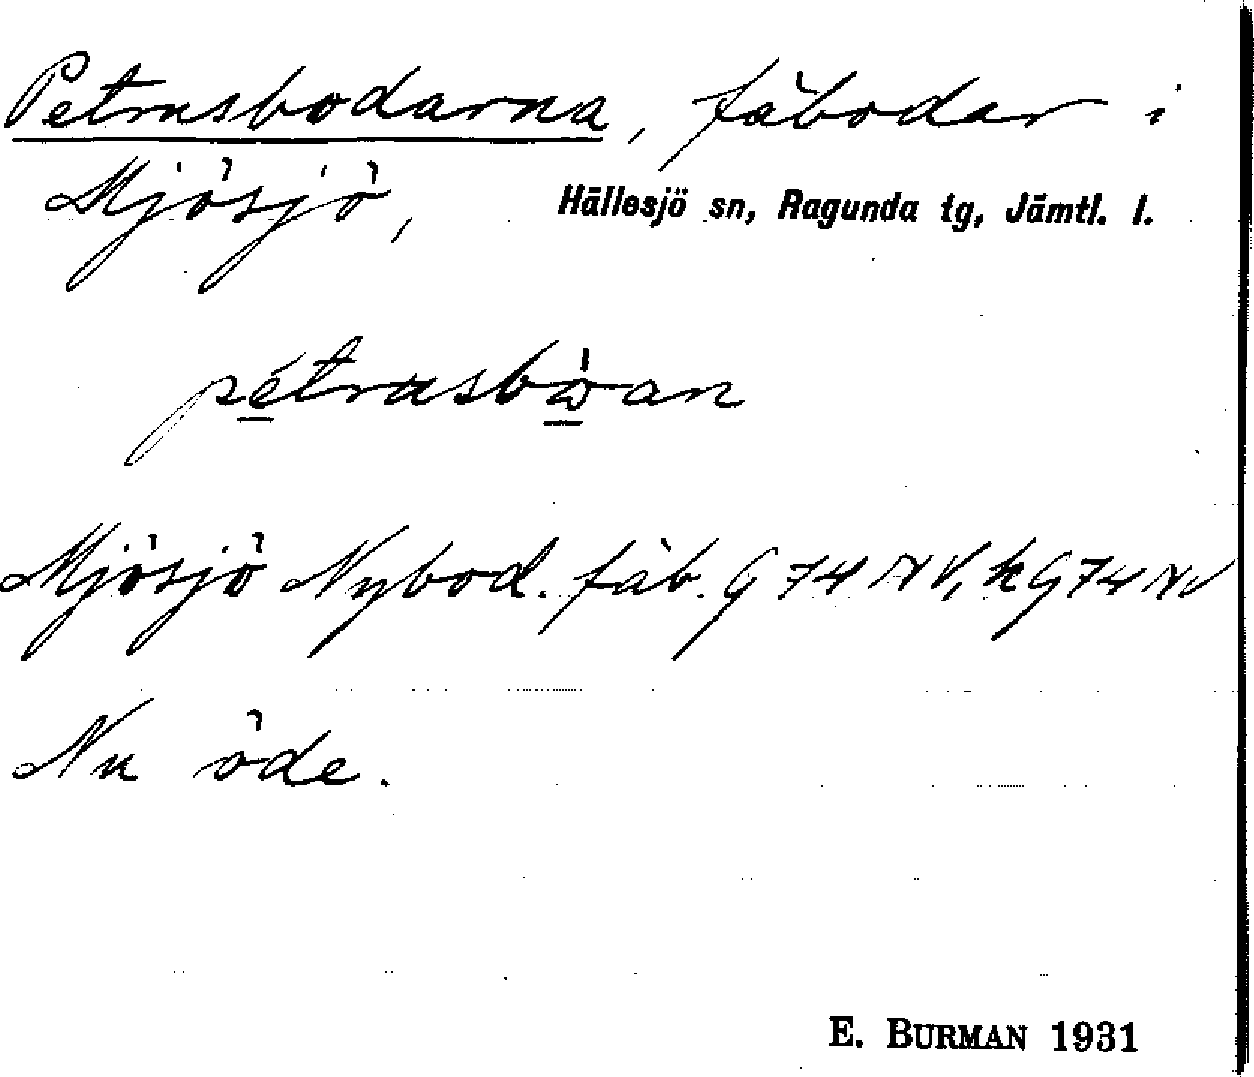 Petrusbodarna, fäbodar i
Mjösjö, Hällesjö sn, Ragunda tg, Jämtl. l.
pétrusbὼan
Mjösjö Nybod. fäb. G 74 NV, k G 74 NV
Nu öde.
E. BURMAN 1931